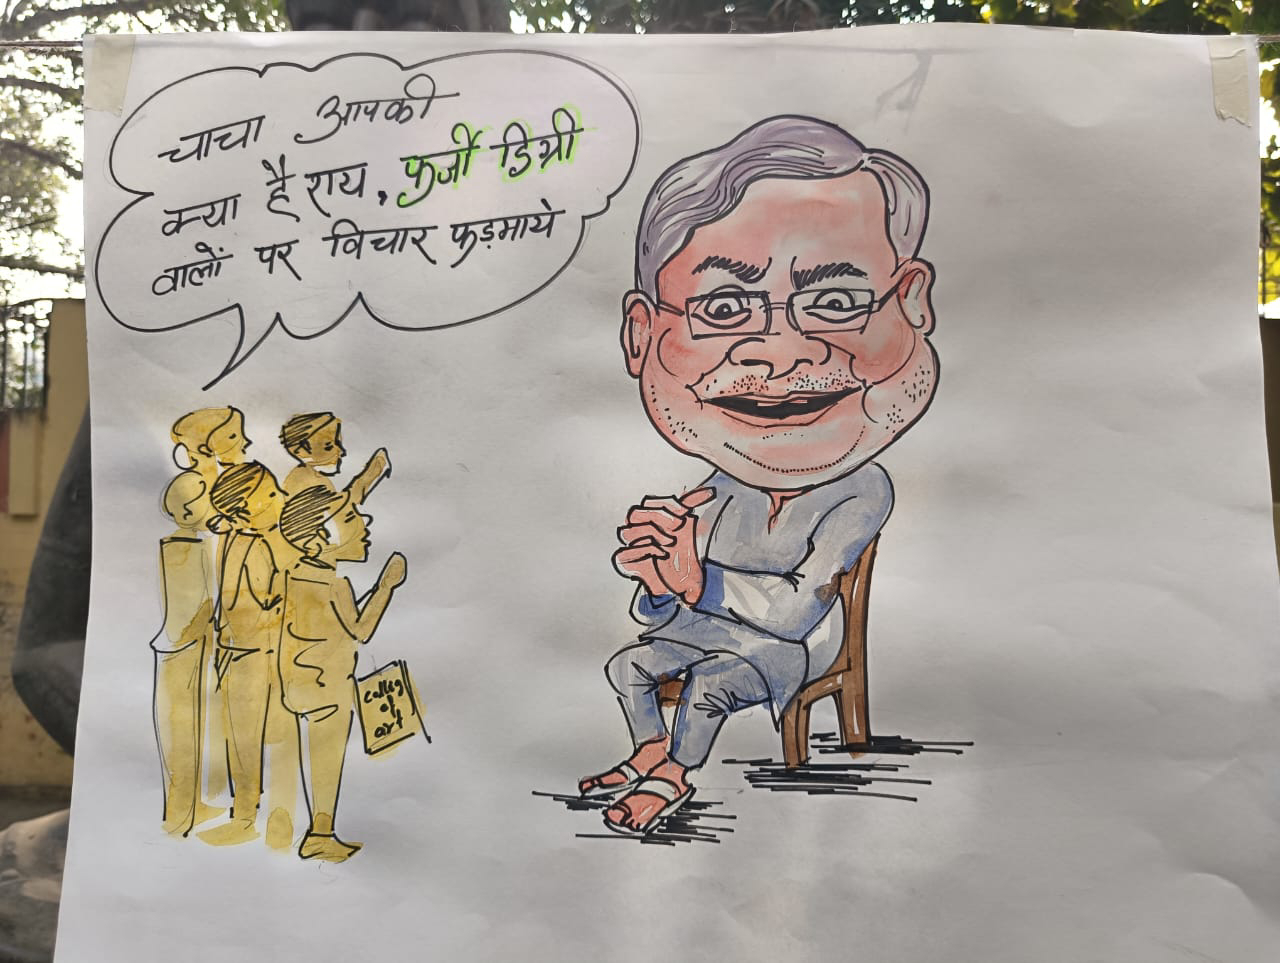 चाचा आपकी
क्या है राय, फर्जी डिग्री
वालों पर विचार फड़माये
colleg
of
art